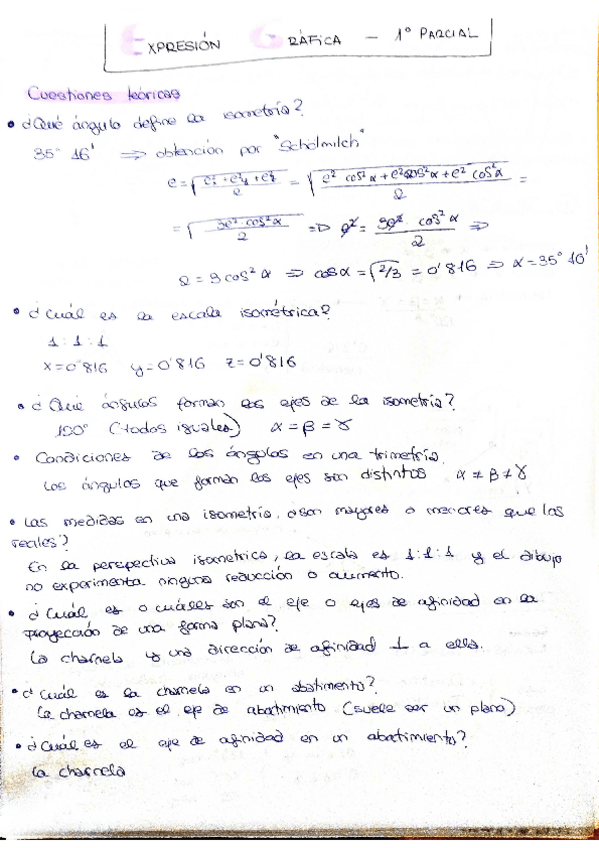 EXPRESIÓN GRÁFICA - 1º PARCIAL
Cuestiones teóricas
• ¿Qué ángulo define la isometría?
35° 16' ⇒ obtención por "Scholmilch"
e = √(e²x + e²y + e²z / 2) = √(e² cos²α + e² cos²α + e² cos²α / 2) =
= √(3e² · cos²α / 2) ⇒ e² = 3e² cos²α / 2 ⇒
2 = 3 cos²α ⇒ cos α = √(2/3) = 0'816 ⇒ α = 35° 16'
• ¿Cuál es la escala isométrica?
1 : 1 : 1
x = 0'816 y = 0'816 z = 0'816
• ¿Qué ángulos forman los ejes de la isometría?
(todos iguales) α = β = γ
• Condiciones de los ángulos en una trimetría.
Los ángulos que forman los ejes son distintos α ≠ β ≠ γ
• Las medidas en una isometría, ¿son mayores o menores que las
reales?
En la perspectiva isométrica, la escala es 1:1:1 y el dibujo
no experimenta ninguna reducción o aumento.
• ¿Cuál es o cuáles son el eje o ejes de afinidad en la
proyección de una forma plana?
La charnela y una dirección de afinidad ⊥ a ella.
• ¿Cuál es la charnela en un abatimiento?
La charnela es el eje de abatimiento (suele ser un plano)
• ¿Cuál es el eje de afinidad en un abatimiento?
La charnela